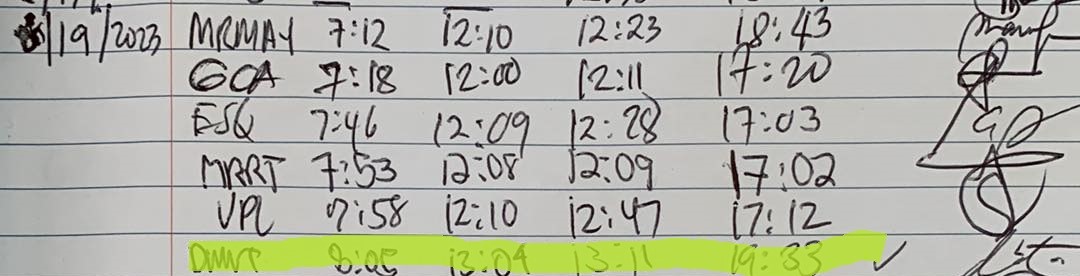 /19/2023 MRMAY 7:12 12:10 12:23 18:43
GCA 7:18 12:00 12:11 17:20
ESQ 7:46 12:09 12:28 17:03
MRRT 7:53 12:08 12:09 17:02
VPL 7:58 12:10 12:47 17:12
8:05 13:04 13:11 19:33 ✓